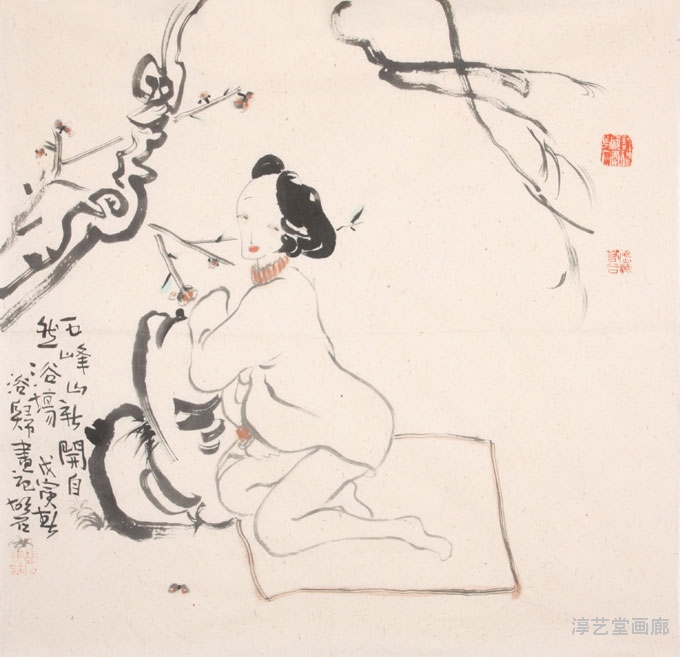 峰山新開自
然浴場戊寅春
浴歸畫記
淳艺堂画廊